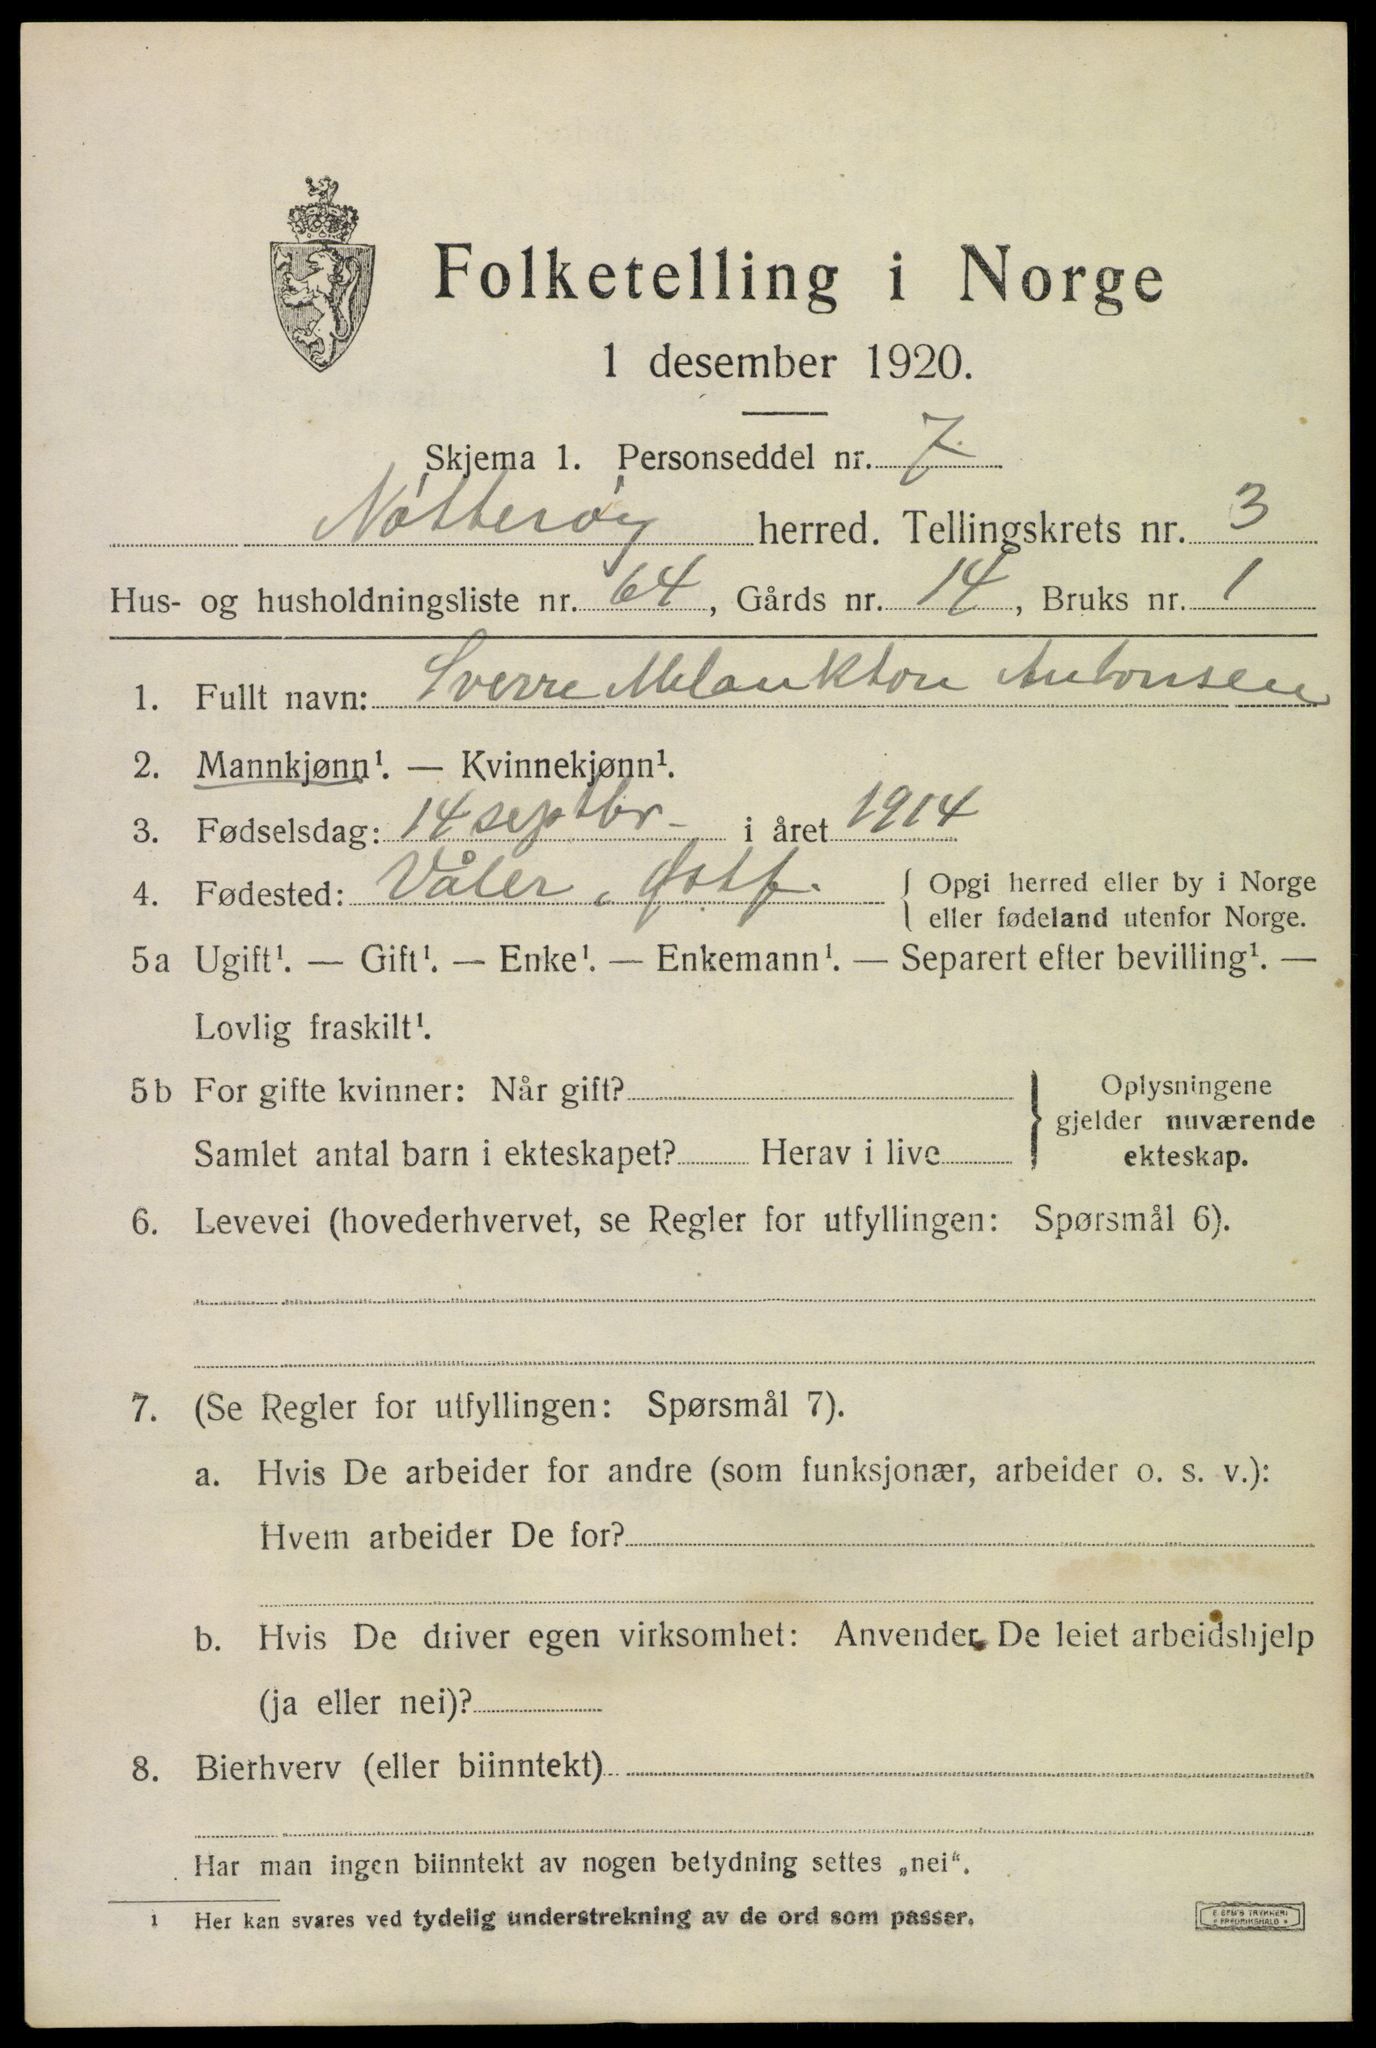 Folketelling i Norge
1 desember 1920.
Skjema 1. Personseddel nr. 7.
Nøtterøy herred. Tellingskrets nr. 3
Hus- og husholdningsliste nr. 64, Gårds nr. 14, Bruks nr. 1
1. Fullt navn: Sverre Melankton Antonsen
2. Mannkjønn¹. — Kvinnekjønn¹.
3. Fødselsdag: 14 septbr - i året 1914
4. Fødested: Våler, Østf. { Opgi herred eller by i Norge
eller fødeland utenfor Norge.
5a Ugift¹. — Gift¹. — Enke¹. — Enkemann¹. — Separert efter bevilling¹. —
Lovlig fraskilt¹.
5b For gifte kvinner: Når gift?
Samlet antal barn i ekteskapet? Herav i live
} Oplysningene
gjelder nuværende
ekteskap.
6. Levevei (hovederhvervet, se Regler for utfyllingen: Spørsmål 6).
7. (Se Regler for utfyllingen: Spørsmål 7).
a. Hvis De arbeider for andre (som funksjonær, arbeider o. s. v.):
Hvem arbeider De for?
b. Hvis De driver egen virksomhet: Anvender De leiet arbeidshjelp
(ja eller nei)?
8. Bierhverv (eller biinntekt)
Har man ingen biinntekt av nogen betydning settes „nei“.
1 Her kan svares ved tydelig understrekning av de ord som passer.
TRYKKERI
FREDRIKSHALD